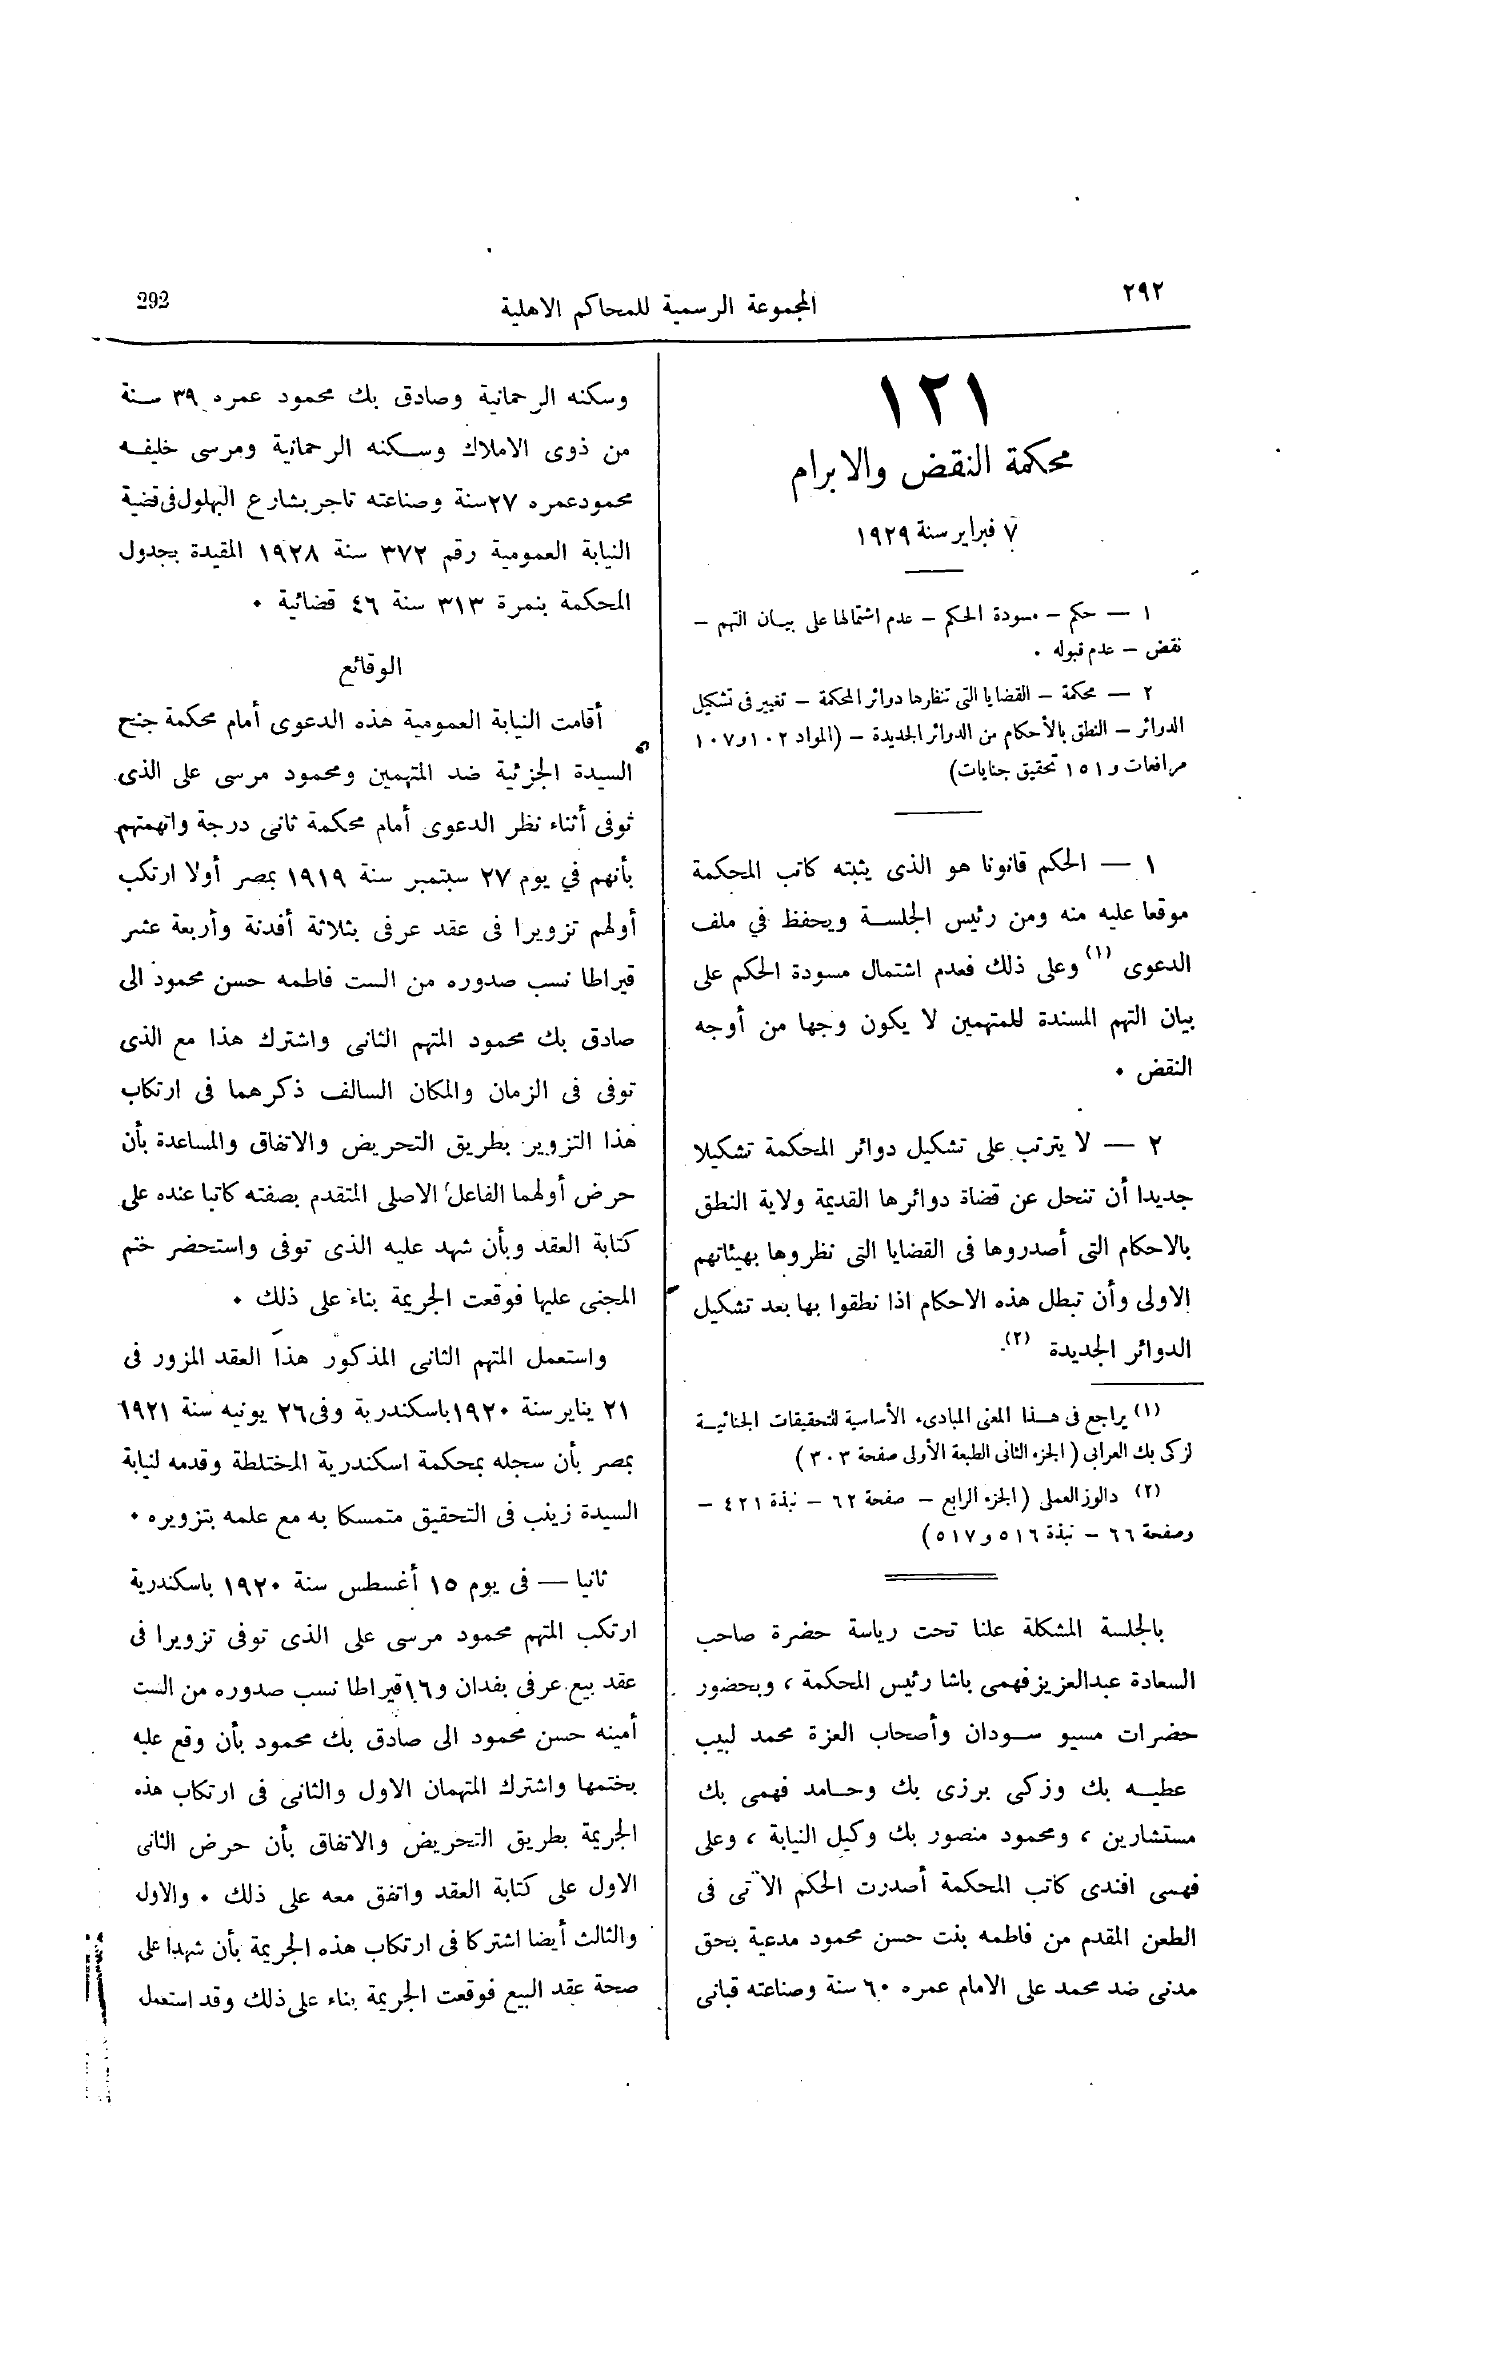 ٢٩٢
المجموعة الرسمية للمحاكم الاهلية
292
١٢١
محكمة النقض والابرام
٧ فبراير سنة ١٩٢٩
١ — حكم – مسودة الحكم – عدم اشتمالها على بيان التهم –
نقض – عدم قبوله .
٢ — محكمة – القضايا التى تنظرها دوائر المحكمة – تغيير فى تشكيل
الدوائر – النطق بالأحكام من الدوائر الجديدة – (المواد ١٠٢ و ١٠٧
مرافعات و ١٥١ تحقيق جنايات)
١ — الحكم قانونا هو الذى يثبته كاتب المحكمة
موقعا عليه منه ومن رئيس الجلسة ويحفظ في ملف
الدعوى (١) وعلى ذلك فعدم اشتمال مسودة الحكم على
بيان التهم المسندة للمتهمين لا يكون وجها من أوجه
النقض .
٢ — لا يترتب على تشكيل دوائر المحكمة تشكيلا
جديدا أن تنحل عن قضاة دوائرها القديمة ولاية النطق
بالاحكام التى أصدروها فى القضايا التى نظروها بهيئاتهم
الاولى وأن تبطل هذه الاحكام اذا نطقوا بها بعد تشكيل
الدوائر الجديدة (٢).
(١) يراجع فى هذا المعنى المبادىء الأساسية للتحقيقات الجنائية
لزكى بك العرابى ( الجزء الثانى الطبعة الأولى صفحة ٣٠٣ )
(٢) دالوز العملى (الجزء الرابع – صفحة ٦٢ – نبذة ٤٢١ –
وصفحة ٦٦ – نبذة ٥١٦ و ٥١٧)
بالجلسة المشكلة علنا تحت رياسة حضرة صاحب
السعادة عبدالعزيز فهمى باشا رئيس المحكمة ، وبحضور
حضرات مسيو سودان وأصحاب العزة محمد لبيب
عطيه بك وزكى برزى بك وحامد فهمى بك
مستشارين ، ومحمود منصور بك وكيل النيابة ، وعلى
فهمى افندى كاتب المحكمة أصدرت الحكم الآتى فى
الطعن المقدم من فاطمه بنت حسن محمود مدعية بحق
مدنى ضد محمد على الامام عمره ٦٠ سنة وصناعته قبانى
وسكنه الرحمانية وصادق بك محمود عمره ٣٩ سنة
من ذوى الاملاك وسكنه الرحمانية ومرسى خليفه
محمود عمره ٢٧ سنة وصناعته تاجر بشارع البهلول فى قضية
النيابة العمومية رقم ٣٧٢ سنة ١٩٢٨ المقيدة بجدول
المحكمة بنمرة ٣١٣ سنة ٤٦ قضائية .
الوقائع
أقامت النيابة العمومية هذه الدعوى أمام محكمة جنح
السيدة الجزئية ضد المتهمين ومحمود مرسى على الذى
توفى أثناء نظر الدعوى أمام محكمة ثانى درجة واتهمتهم
بأنهم في يوم ٢٧ سبتمبر سنة ١٩١٩ بمصر أولا ارتكب
أولهم تزويرا فى عقد عرفى بثلاثة أفدنة وأربعة عشر
قيراطا نسب صدوره من الست فاطمه حسن محمود الى
صادق بك محمود المتهم الثانى واشترك هذا مع الذى
توفى فى الزمان والمكان السالف ذكرهما فى ارتكاب
هذا التزوير بطريق التحريض والاتفاق والمساعدة بأن
حرض أولهما الفاعل الاصلى المتقدم بصفته كاتبا عنده على
كتابة العقد وبأن شهد عليه الذى توفى واستحضر ختم
المجنى عليها فوقعت الجريمة بناء على ذلك .
واستعمل المتهم الثانى المذكور هذا العقد المزور فى
٢١ يناير سنة ١٩٢٠ باسكندرية وفى ٢٦ يونيه سنة ١٩٢١
بمصر بأن سجله بمحكمة اسكندرية المختلطة وقدمه لنيابة
السيدة زينب فى التحقيق متمسكا به مع علمه بتزويره .
ثانيا — فى يوم ١٥ أغسطس سنة ١٩٢٠ باسكندرية
ارتكب المتهم محمود مرسى على الذى توفى تزويرا فى
عقد بيع عرفى بفدان و١٦ قيراطا نسب صدوره من الست
أمينه حسن محمود الى صادق بك محمود بأن وقع عليه
بختمها واشترك المتهمان الاول والثانى فى ارتكاب هذه
الجريمة بطريق التحريض والاتفاق بأن حرض الثانى
الاول على كتابة العقد واتفق معه على ذلك . والاول
والثالث أيضا اشتركا فى ارتكاب هذه الجريمة بأن شهدا على
صحة عقد البيع فوقعت الجريمة بناء على ذلك وقد استعمل